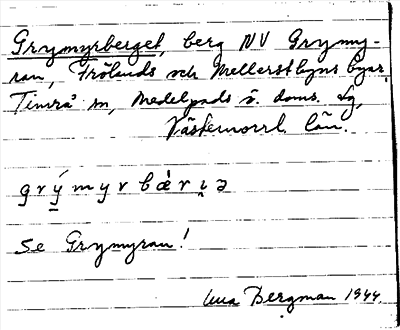 Grymyrberget, berg NV Grymy-
ran, Frölands och Mellerstbyns byar,
Timrå sn, Medelpads ö. doms. dg,
Västernorrl. län.
grýmyrbærɩ̯ə
Se Grymyran!
Bergman 1944